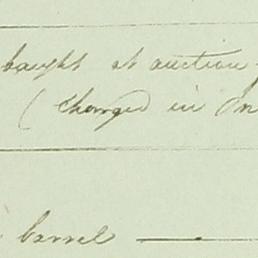 bought at auction
( charged in
barrel